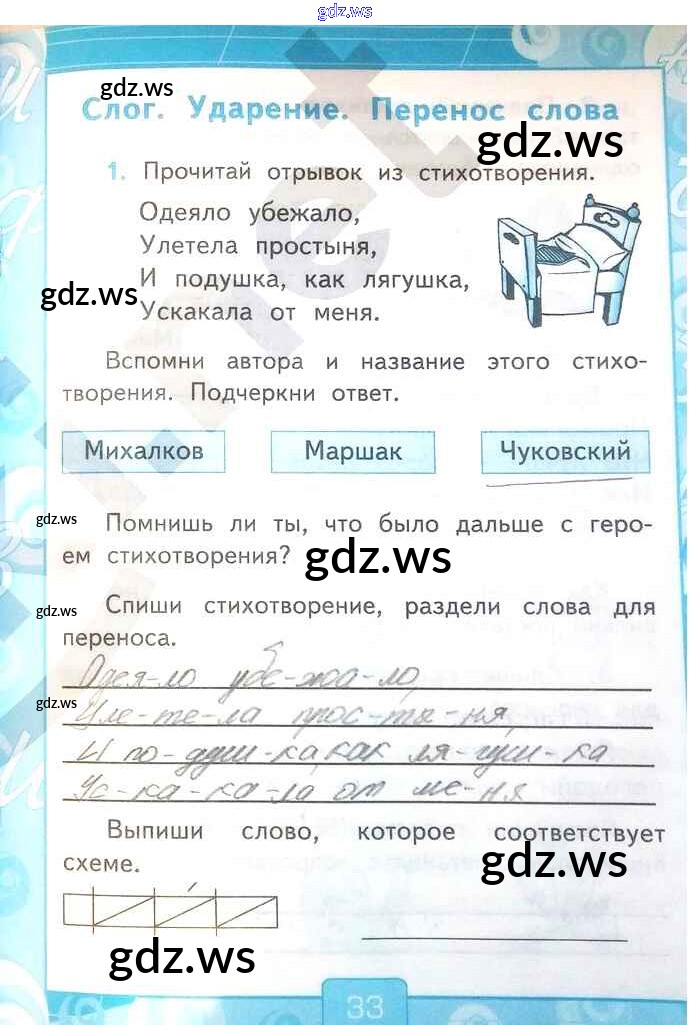 gdz.ws
gdz.ws
Слог. Ударение. Перенос слова
gdz.ws
1. Прочитай отрывок из стихотворения.
Одеяло убежало,
Улетела простыня,
И подушка, как лягушка,
gdz.ws
Ускакала от меня.
Вспомни автора и название этого стихо-
творения. Подчеркни ответ.
Михалков Маршак Чуковский
gdz.ws
Помнишь ли ты, что было дальше с геро-
ем стихотворения?
gdz.ws
gdz.ws
Спиши стихотворение, раздели слова для
переноса.
Одея-ло убе-жа-ло,
gdz.ws
Уле-те-ла прос-ты-ня,
И по-душ-ка, как ля-гуш-ка
Ус-ка-ка-ла от ме-ня
Выпиши слово, которое соответствует
схеме.
gdz.ws
gdz.ws
33